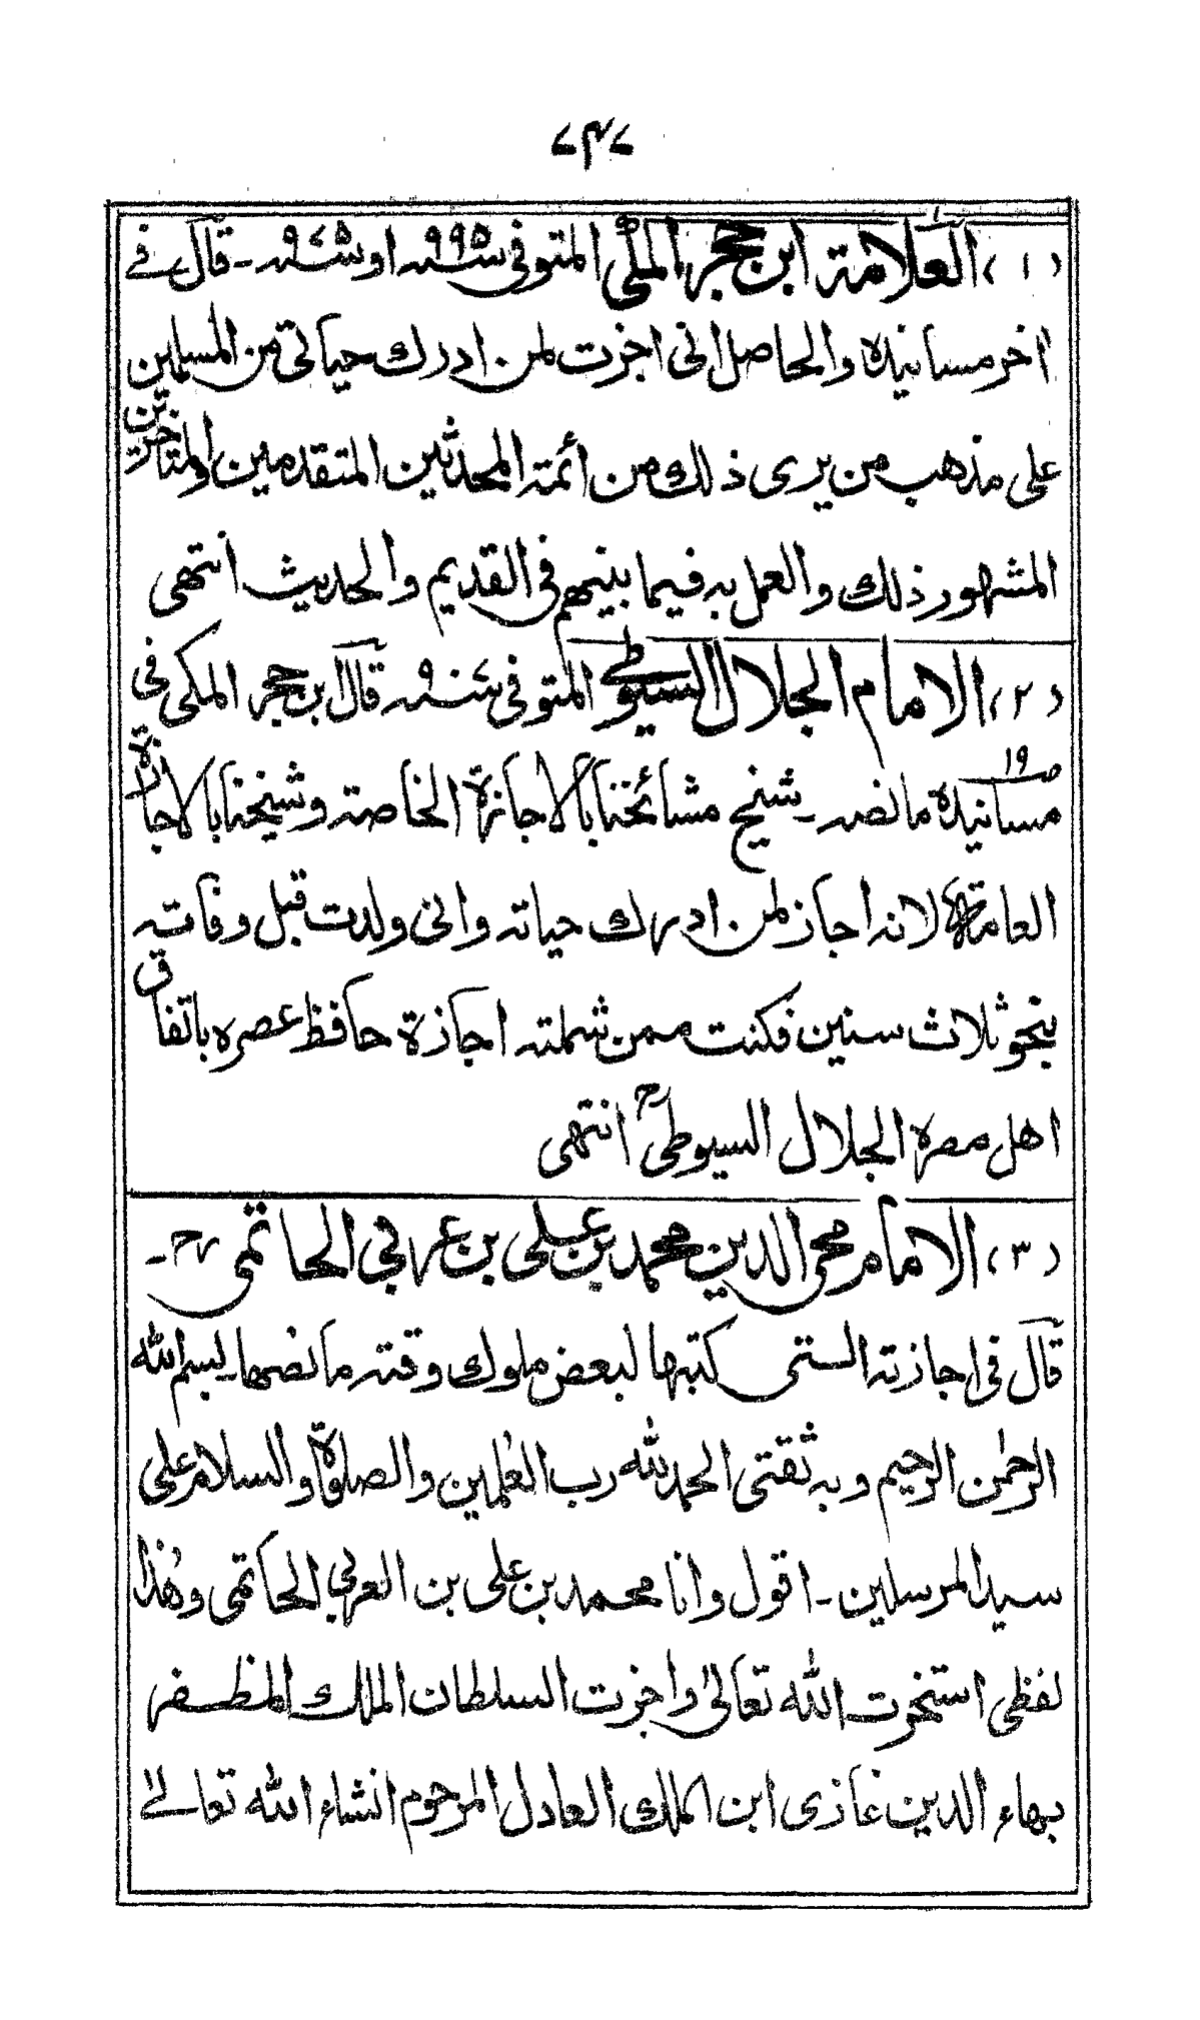 ۷۴۷
(۱) العلامة ابن حجر المكي المتوفى سنة ۹۹۵ او سنة ۹۷۵ - قال في
اخر مسانيده والحاصل انى اجزت لمن ادرك حياتى من المسلمين
على مذهب من يرى ذلك من أئمة المحدثين المتقدمين والمتاخرين
المشهور ذلك والعمل به فيما بينهم فى القديم والحديث انتهى
(۲) الامام الجلال السيوطى المتوفى سنة قال ابن حجر المكى فى
مسانيده ص۱۹ ما نصه - شيخ مشائخنا بالاجازة الخاصة وشيخنا بالاجازة
العامة لانه اجاز لمن ادرك حياته وانى ولدت قبل وفاته
بنحو ثلاث سنين فكنت ممن شملته اجازة حافظ عصره باتفاق
اهل مصره الجلال السيوطىؒ انتهى
(۳) الامام محى الدين محمد بن على بن عربي الحاتمى رح -
قال فى اجازته التى كتبها لبعض ملوك وقته ما نصها - بسم الله
الرحمٰن الرحيم وبه ثقتى الحمد لله رب العٰلمين والصلوٰة والسلام على
سيد المرسلين - اقول وانا محمد بن على بن العربي الحاتمى وهٰذا
لفظى استخرت الله تعالىٰ واجزت السلطان الملك المظفر
بهاء الدين غازى ابن الملك العادل المرحوم انشاء الله تعالىٰ